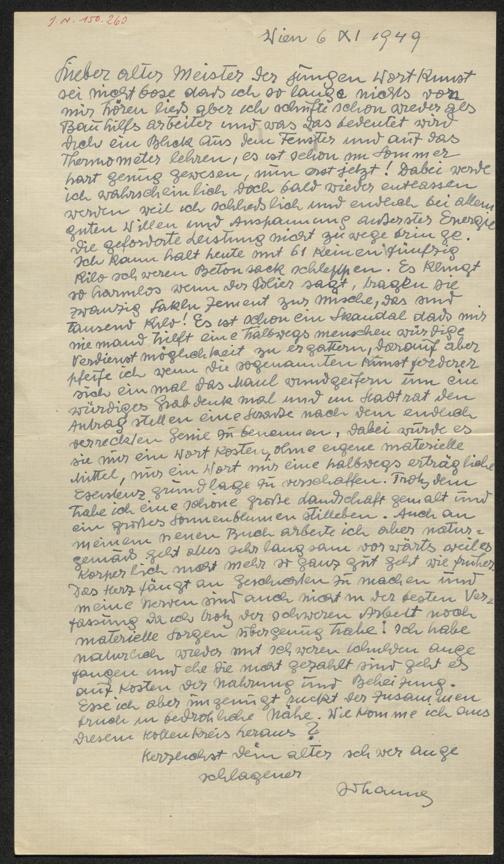 J.N. 150.260
Wien 6 XI 1949
Lieber alter Meister der jungen Wortkunst
sei nicht böse dass ich so lange nichts von
mir hören liess aber ich schufte schon wieder als
Bauhilfsarbeiter und was das bedeutet wird
dich ein Blick aus dem Fenster und auf das
Thermometer lehren, es ist schon im Sommer
hart genug gewesen, nun erst jetzt! Dabei werde
ich wahrscheinlich doch bald wieder entlassen
werden weil ich schliesslich und endlich bei allem
guten Willen und Anspannung äußerster Energie
die geforderte Leistung nicht zu wege bringe.
Ich kann halt heute mit 61 keinen fünfzig
Kilo schweren Betonsack schleppen. Es klingt
so harmlos wenn der Polier sagt, tragen sie
zwanzig Sackln Zement zur Mische, das sind
tausend Kilo! Es ist schon ein Skandal dass mir
niemand hilft eine halbwegs menschenwürdige
Verdienstmöglichkeit zu ergattern, darauf aber
pfeife ich wenn die sogenannten Kunstförderer
sich einmal das Maul um ein
würdiges Grabdenkmal und im Stadtrat den
Antrag stellen eine nach dem endlich
verreckten Genie zu benennen, dabei würde es
sie nur ein Wort kosten, ohne eigene materielle
Mittel, nur ein Wort mir eine halbwegs erträgliche
Existenzgrundlage zu verschaffen. Trotzdem
habe ich eine schöne große Landschaft gemalt und
ein großes Sonnenblumen Stilleben. Auch an
meinem neuen Buch arbeite ich aber natur=
gemäß geht alles sehr langsam vorwärts weil es
körperlich nicht mehr so ganz gut geht wie früher
Das Herz fängt an Geschichten zu machen und
meine Nerven sind auch nicht in der besten Ver=
fassung da ich trotz der schweren Arbeit noch
materielle Sorgen übergenug habe! Ich habe
natürlich wieder mit schweren Schulden ange
fangen und ehe die nicht gezahlt sind geht es
auf Kosten der Nahrung und Beheizung.
Esse ich aber ungenügt rückt der Zusammen
bruch in bedrohliche Nähe. Wie komme ich aus
diesem Höllenkreis heraus?
Herzlichst dein alter schwer ange
schlagener
Johannes